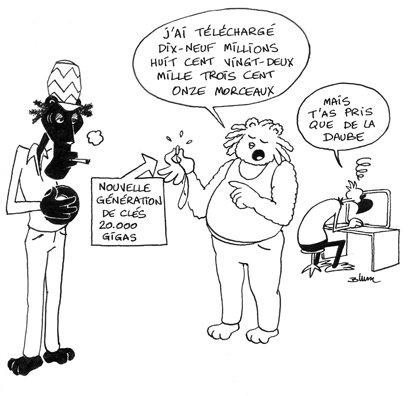 J'AI TÉLÉCHARGÉ
DIX-NEUF MILLIONS
HUIT CENT VINGT-DEUX
MILLE TROIS CENT
ONZE MORCEAUX
MAIS
T'AS PRIS
QUE DE LA
DAUBE
NOUVELLE
GÉNÉRATION
DE CLÉS
20.000
GIGAS
Blum